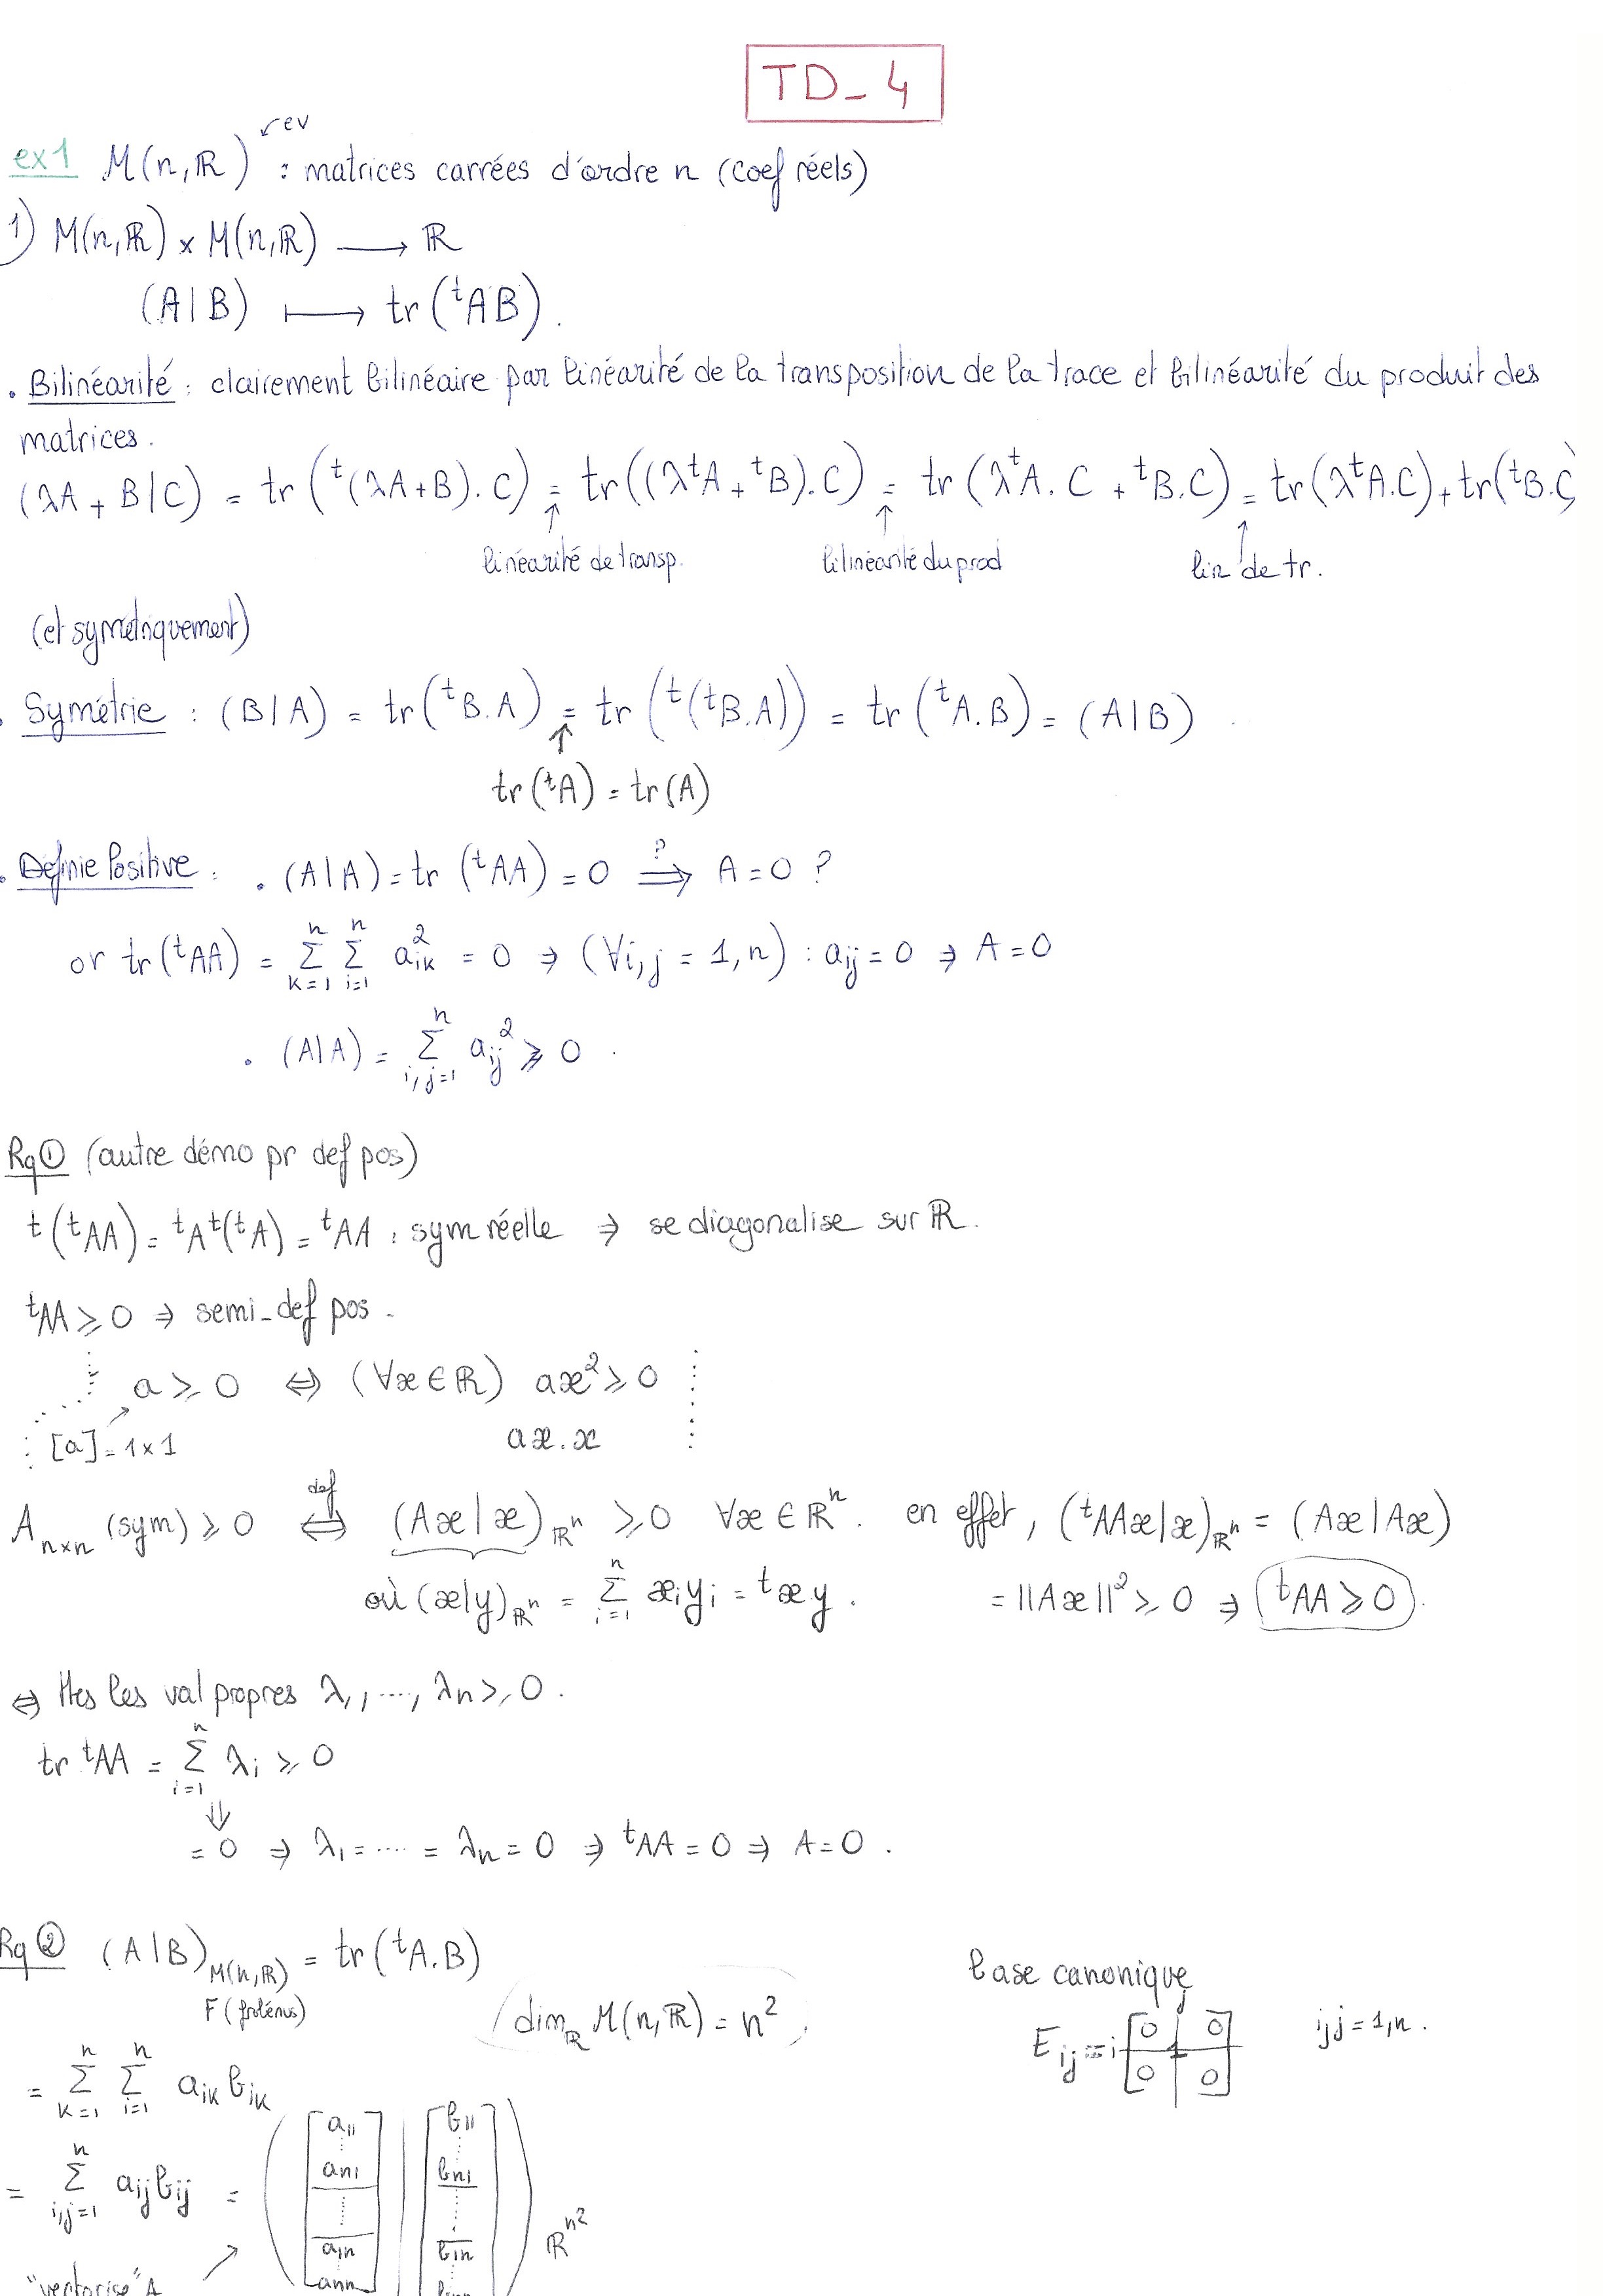 TD_4
ev
ex1 M(n,ℝ) : matrices carrées d'ordre n (coef réels)
1) M(n,ℝ) × M(n,ℝ) ⟶ ℝ
(A|B) ⟼ tr(ᵗAB).
. Bilinéarité : clairement bilinéaire par linéarité de la transposition de la trace et bilinéarité du produit des
matrices.
(λA + B|C) = tr(ᵗ(λA+B).C) = tr((λᵗA + ᵗB).C) = tr(λᵗA.C + ᵗB.C) = tr(λᵗA.C) + tr(ᵗB.C)
↑ linéarité de transp. ↑ bilinéarité du prod ↑ lin de tr.
(et symétriquement)
. Symétrie : (B|A) = tr(ᵗB.A) = tr(ᵗ(ᵗB.A)) = tr(ᵗA.B) = (A|B).
↑
tr(ᵗA) = tr(A)
. Définie Positive : . (A|A) = tr(ᵗAA) = 0 ?⟹ A = 0 ?
or tr(ᵗAA) = Σ_{k=1}^n Σ_{i=1}^n a_{ik}² = 0 ⇒ (∀i,j = 1,n) : a_{ij} = 0 ⇒ A = 0
. (A|A) = Σ_{i,j=1}^n a_{ij}² ⩾ 0.
Rq① (autre démo pr def pos)
ᵗ(ᵗAA) = ᵗAᵗ(ᵗA) = ᵗAA : sym réelle ⇒ se diagonalise sur ℝ.
ᵗAA ⩾ 0 ⇒ semi_def pos.
a ⩾ 0 ⇔ (∀x ∈ ℝ) ax² ⩾ 0
[a] = 1×1 ax.x
A_{n×n} (sym) ⩾ 0 ⇔^{def} (Ax|x)_{ℝⁿ} ⩾ 0 ∀x ∈ ℝⁿ. en effet, (ᵗAAx|x)_{ℝⁿ} = (Ax|Ax)
où (x|y)_{ℝⁿ} = Σ_{i=1}^n x_i y_i = ᵗxy. = ||Ax||² ⩾ 0 ⇒ ᵗAA ⩾ 0.
⇔ ttes les val propres λ₁, ..., λn ⩾ 0.
tr ᵗAA = Σ_{i=1}^n λ_i ⩾ 0
⇓
= 0 ⇒ λ₁ = .... = λn = 0 ⇒ ᵗAA = 0 ⇒ A = 0.
Rq② (A|B)_{M(n,ℝ)} = tr(ᵗA.B)
base canonique
(dim_ℝ M(n,ℝ) = n²)
E_{ij} = i [0 0 1 0 0] j i,j = 1,n.
= Σ_{k=1}^n Σ_{i=1}^n a_{ik} b_{ik}
= Σ_{i,j=1}^n a_{ij} b_{ij} = ([a₁₁ ⋮ a_{n1} ⋮ a_{1n} ⋮ a_{nn}] | [b₁₁ ⋮ b_{n1} ⋮ b_{1n} ⋮])_{ℝ^{n²}}
"vectorise" A